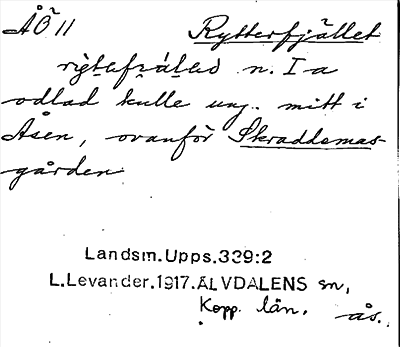 ÅÖ 11 Rytterfjället
n. I a
odlad kulle ung. mitt i
Åsen, ovanför Skraddemas-
gården
Landsm. Upps. 339:2
L. Levander. 1917. ÄLVDALENS sn,
Kopp. län. ås.